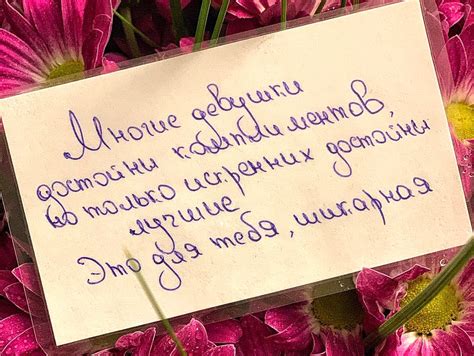 Многие девушки
достойны комплиментов,
но только искренних достойны
лучшие
Это для тебя, шикарная